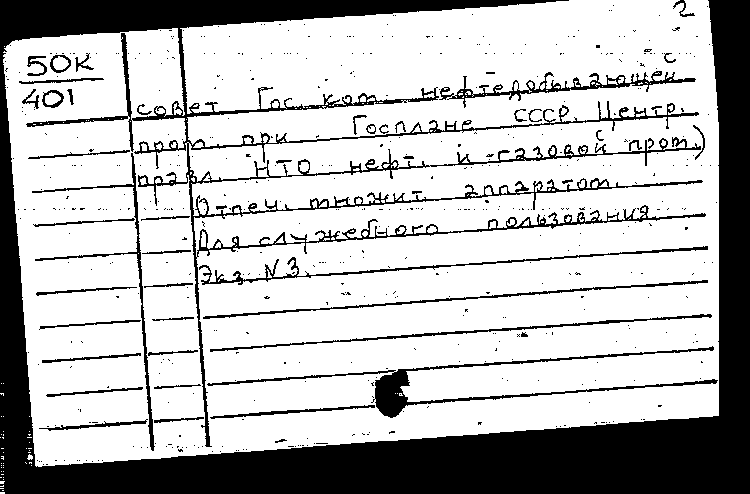 2
50К
401
совет Гос. ком. нефтедобывающей
пром. при Госплане СССР. Центр.
правл. НТО нефт. и газовой пром.)
Отпеч. множит. аппаратом.
Для служебного пользования.
Экз. №3.